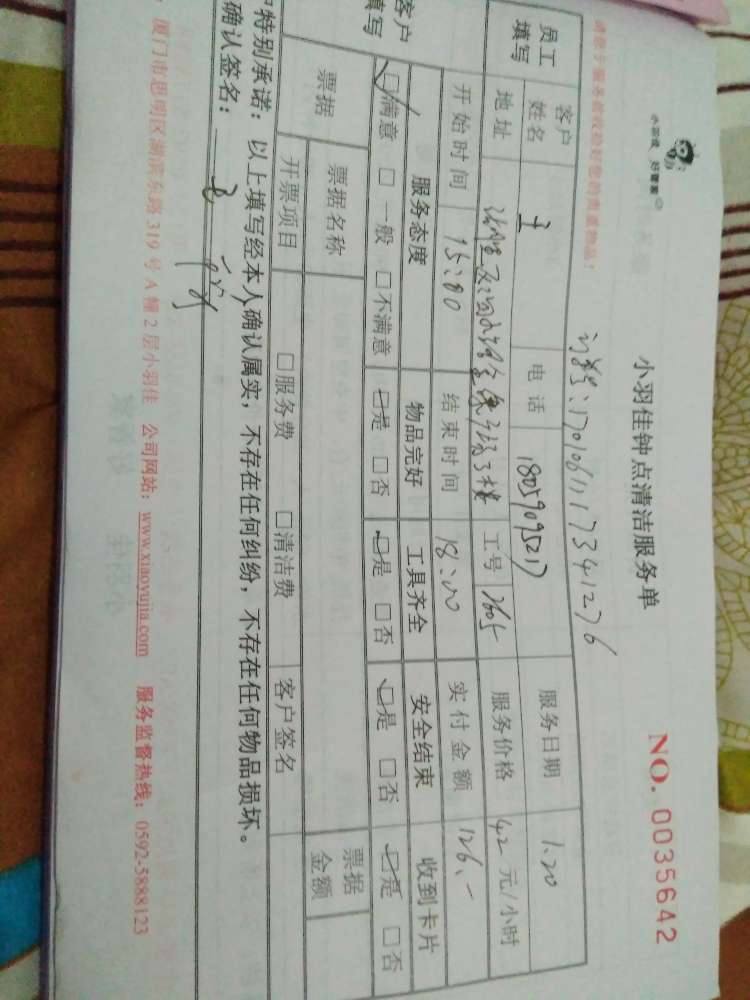 小羽佳 好管家
小羽佳钟点清洁服务单
NO. 0035642
请您于服务前收拾好您的贵重物品！
订单号：1701061117341276
员工填写
客户姓名 王 电话 18059095217 服务日期 1.20
地址 工号 2605 服务价格 42元/小时
开始时间 15:00 结束时间 18:00 实付金额 126.-
客户填写
服务态度 物品完好 工具齐全 安全结束 收到卡片
☑满意 □一般 □不满意 ☑是 □否 ☑是 □否 ☑是 □否 ☑是 □否
票据 票据名称 票据金额
开票项目 □服务费 □清洁费 客户签名
特别承诺：以上填写经本人确认属实，不存在任何纠纷，不存在任何物品损坏。
确认签名：
厦门市思明区湖滨东路319号A幢2层小羽佳 公司网站：www.xiaoyujia.com 服务监督热线：0592-5888123